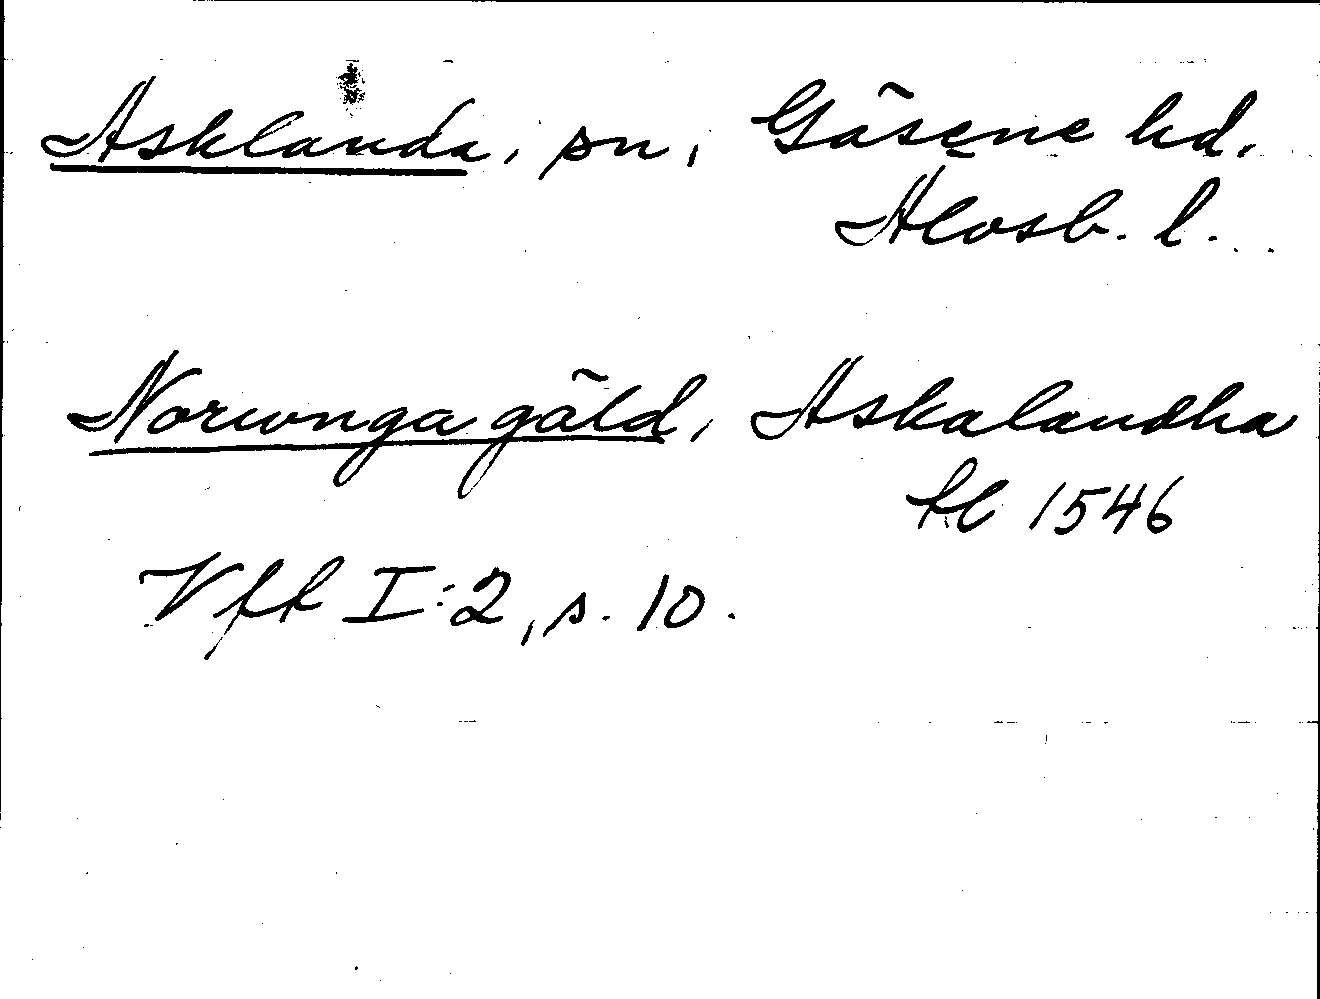 Asklanda, sn, Gäsene hd,
Älvsb. l.
Norunga gäld, Askalandha
hl 1546
Vfk I:2, s. 10.